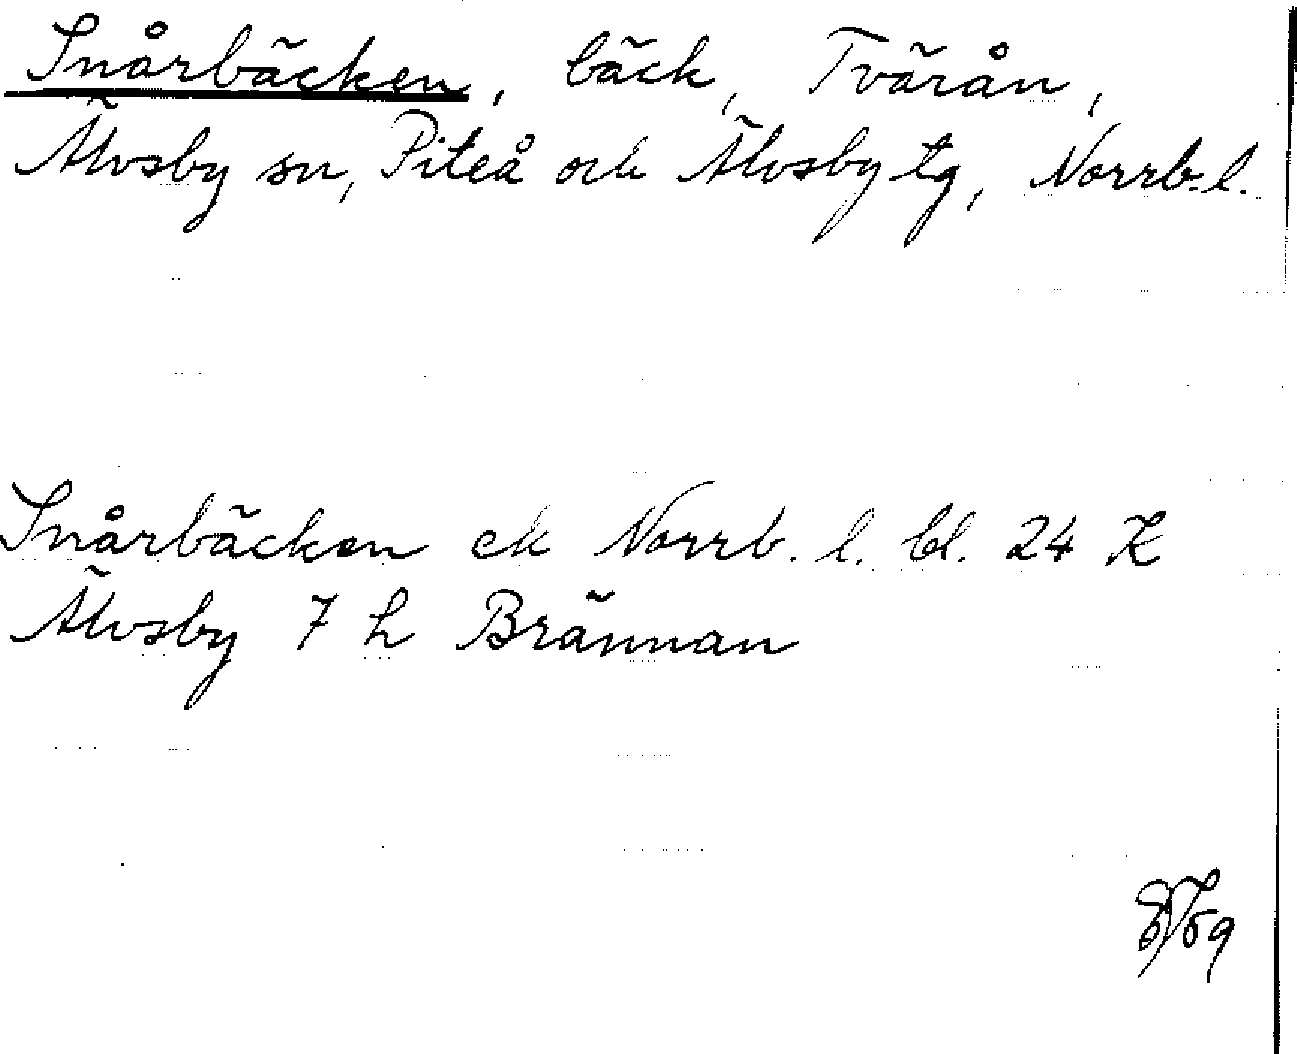 Snårbäcken, bäck, Tvärån,
Älvsby sn, Piteå och Älvsby tg, Norrb. l.
Snårbäcken ek Norrb. l. bl. 24 K
Älvsby 7 h Brännan